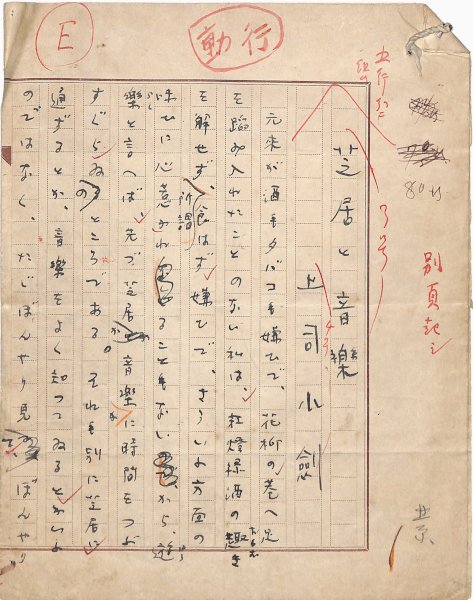 行動
E
別頁起シ
芝居と音樂
上司小劍
元来が酒もタバコも嫌ひで、花柳の巷へ足
を踏み入れたことのない私は、紅燈緑酒の趣き
を解せず、所謂食はず嫌ひで、さういふ方面の
味ひに心惹かれることもないから、遊
樂と言へば、先づ芝居か音樂に時間をつぶ
すぐらゐのところである。それも別に芝居に
通ずるとか、音樂をよく知つてゐるとかいふ
のではなく、たゞぼんやり見て、ぼんやり